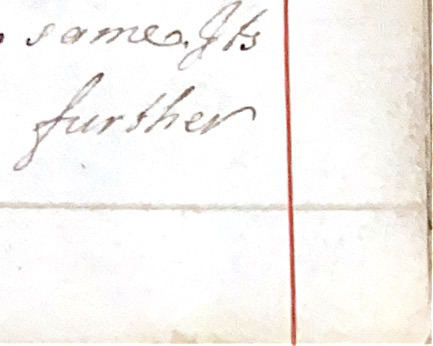 same. Its
further